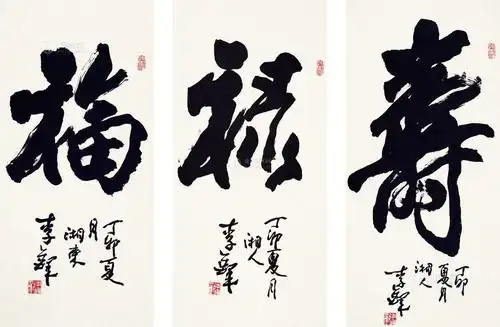 福
丁卯夏
月湘東
李鐸
禄
丁卯夏月
湘人
李鐸
壽
丁卯
夏月
湘人
李鐸